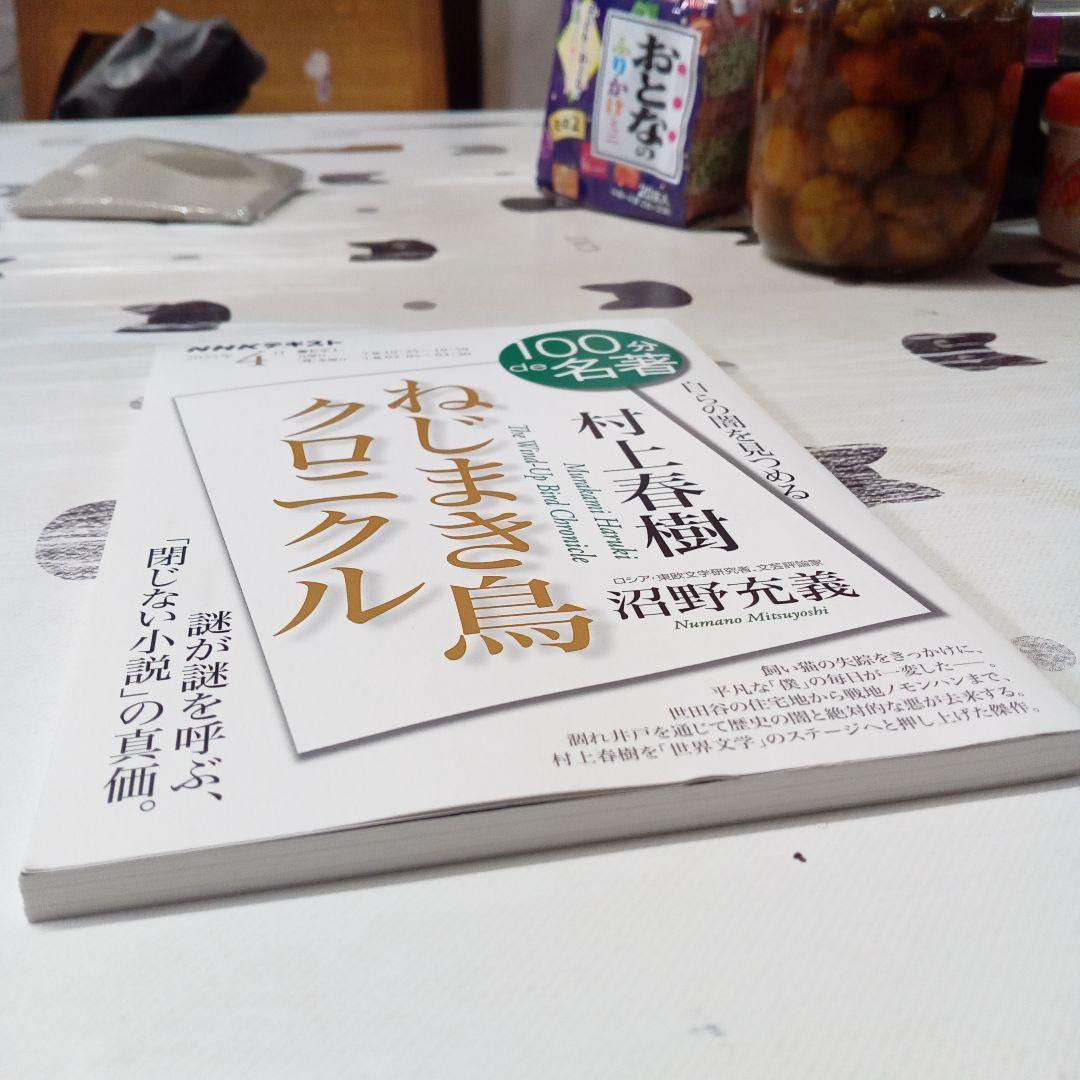 おとなの
ふりかけ
NHKテキスト
4月
100分
de名著
自らの闇を見つめる
村上春樹
Murakami Haruki
ねじまき鳥
クロニクル
The Wind-Up Bird Chronicle
ロシア・東欧文学研究者、文芸評論家
沼野充義
Numano Mitsuyoshi
謎が謎を呼ぶ、
「閉じない小説」の真価。
飼い猫の失踪をきっかけに、
平凡な「僕」の毎日が一変した──。
世田谷の住宅地から戦地ノモンハンまで、
涸れ井戸を通じて歴史の闇と絶対的な悪が去来する。
村上春樹を「世界文学」のステージへと押し上げた傑作。